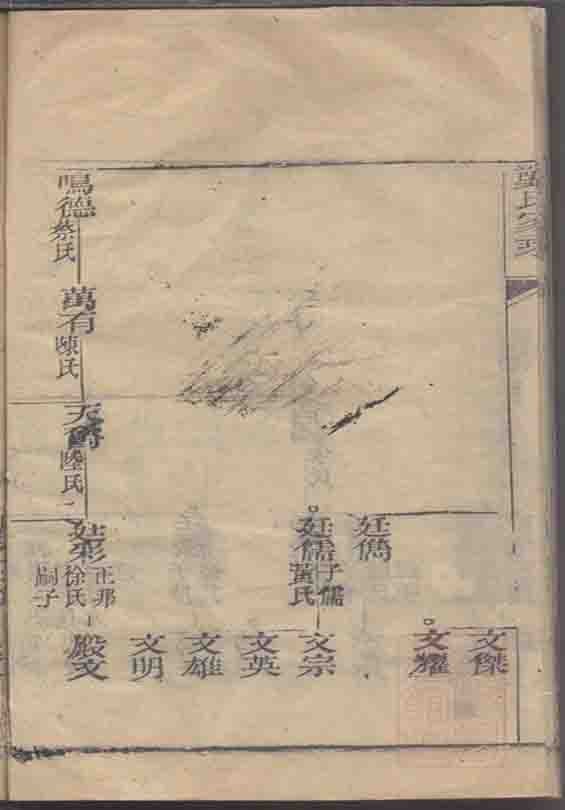 氏家
文傑
文耀
廷儁
廷儒
子儒
黃氏
文宗
文英
文雄
文明
鳴德
蔡氏
萬有
陳氏
天爵
陸氏
廷彩
正邦
徐氏
嗣子
殿文